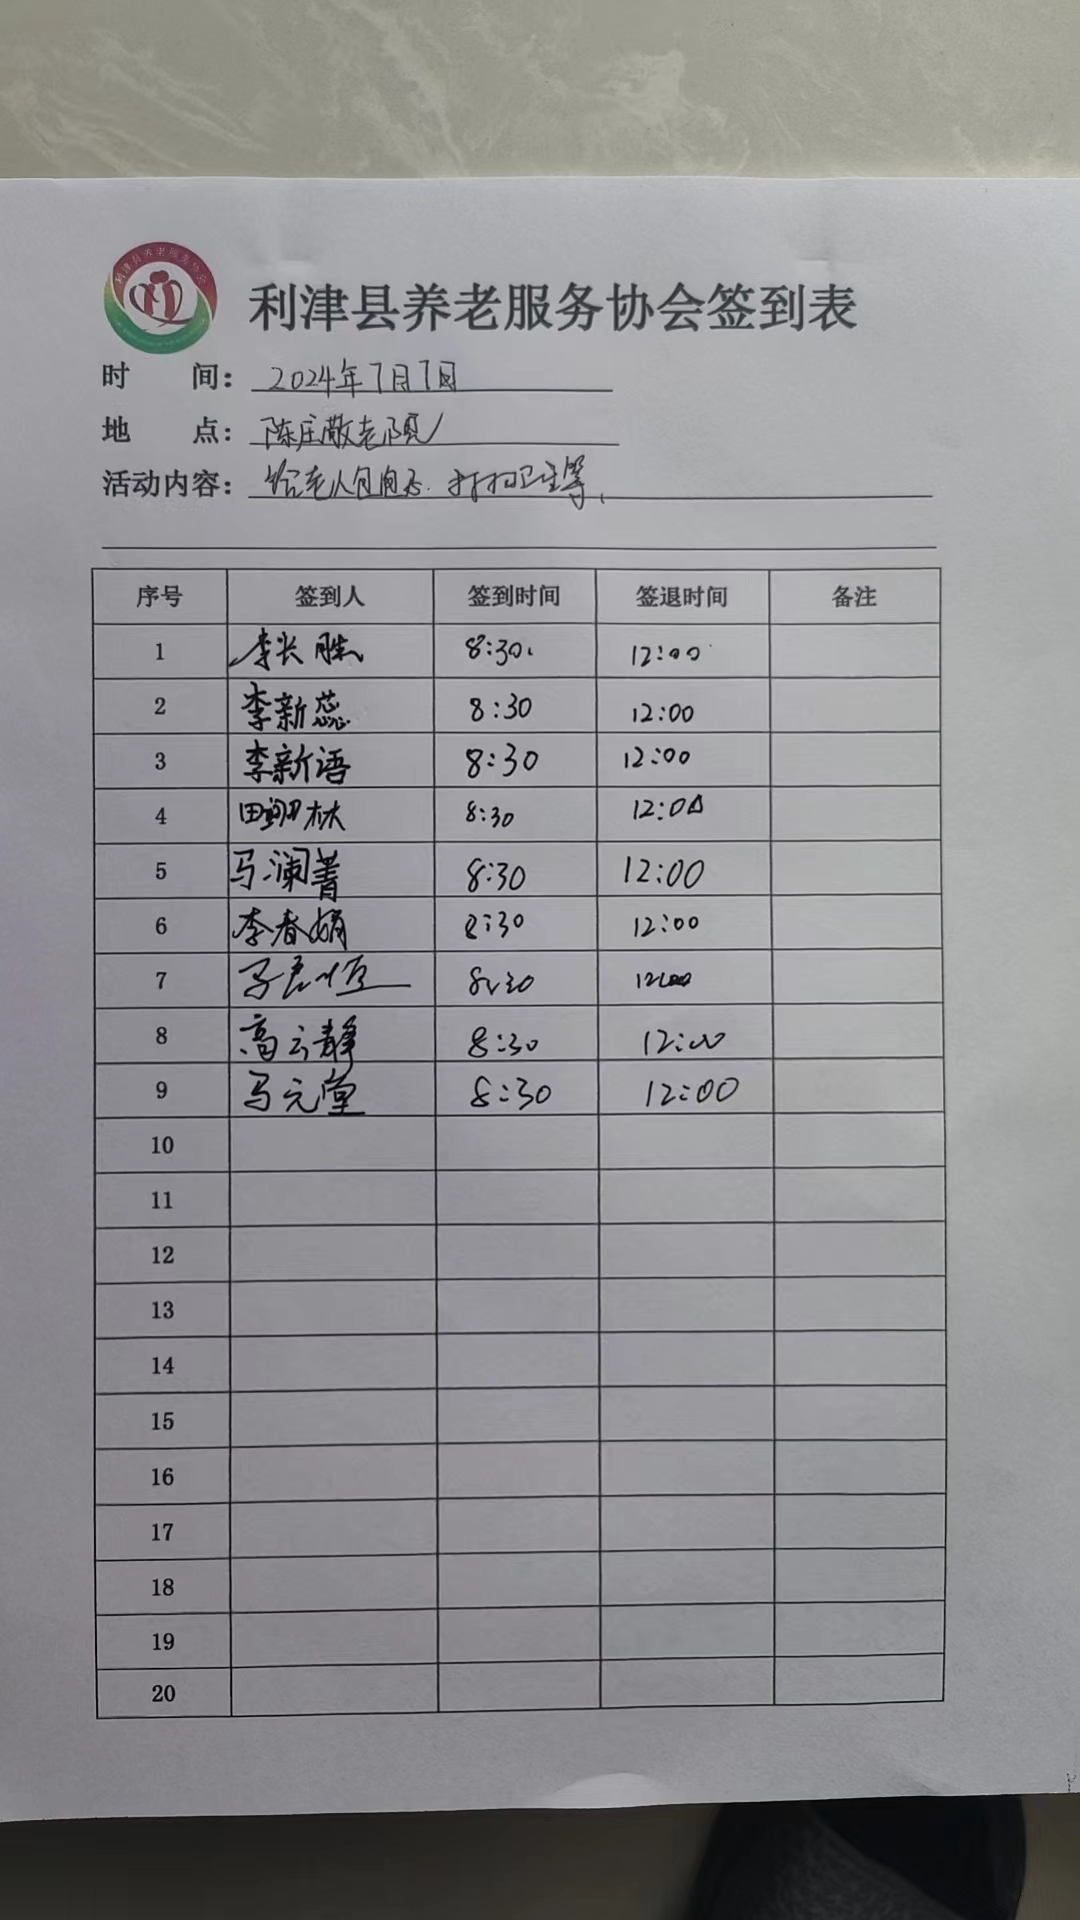 利津县养老服务协会
利津县养老服务协会签到表
时 间： 2024年7月7日
地 点： 陈庄敬老院
活动内容： 给老人包包子、打扫卫生等、
序号 签到人 签到时间 签退时间 备注
1 李长胜 8:30 12:00
2 李新蕊 8:30 12:00
3 李新语 8:30 12:00
4 田 林 8:30 12:00
5 马澜菁 8:30 12:00
6 李春娟 8:30 12:00
7 8:30 12:00
8 高云静 8:30 12:00
9 马元堂 8:30 12:00
10
11
12
13
14
15
16
17
18
19
20